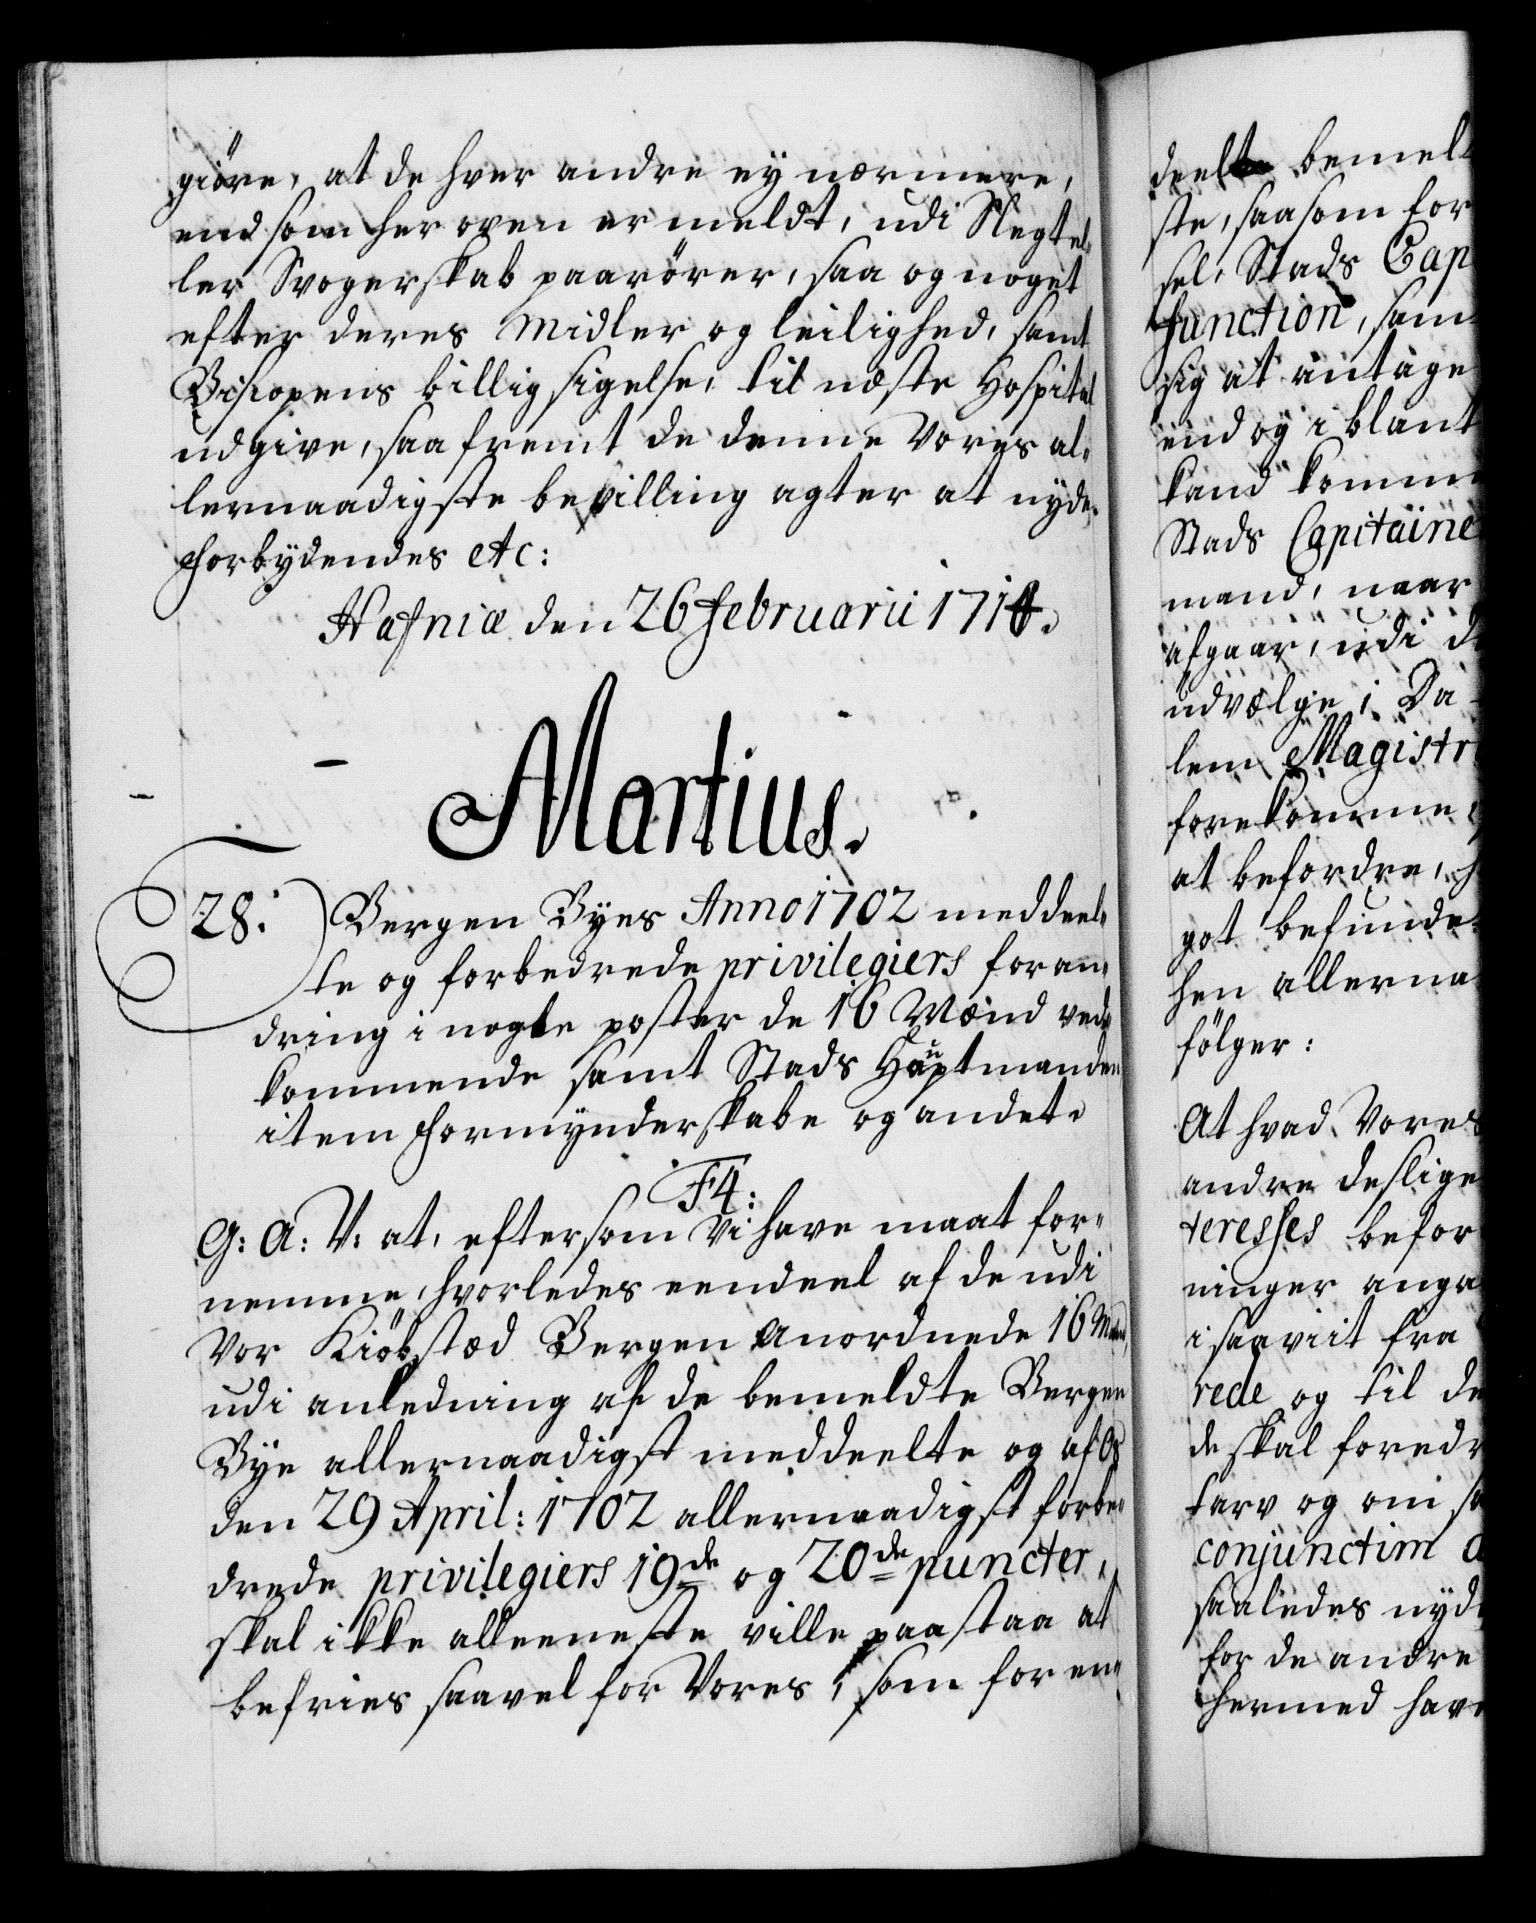 giöre, at de hver andre ey nærmere,
end som her oven er meldt, udi Slegt el¬
ler Svogerskab paarörer, saa og noget
efter deres Midler og leilighed, samt
Biskopens billig sigelse, til næste Hospital
udgive, saafremt de denne Vores al¬
lernaadigste bevilling agter at nyde.
Forbydendes etc:
Hafniæ den 26 Februarii 1714.
Martius.
28. Bergen Byes Anno 1702 meddeel¬
te og forbedrede privilegiers foran¬
dring i nogle poster de 16 Mænd ved¬
kommende samt Stads Hauptmanden
item Formynderskabe og andet.
F4:
G: A: V: at, eftersom Vi have maat for¬
nemme, hvorledes eendeel af de udi
Vor Kiöbstæd Bergen Anordnede 16 Mænd,
udi anledning af de bemeldte Bergen
Bye allernaadigst meddeelte og af Os
den 29 April: 1702 allernaadigst forbe¬
drede privilegiers 19de og 20de puncter,
skal ikke alleeneste ville paastaa at
befries saavel for Vores, som for en¬
deelte bemel
ste, saasom for
sel, Stads Cap
function, sam
sig at antage
end og i blant
kand komme
Stads Capitaine
mand, naar
afgaar, udi d
udvælge, i Da
lem Magistr
forekomme,
at befordre, h
got befunde
hen allerna
fölger:
At hvad Vores
andre deslige
teresses befor
ninger anga
i saaviit fra
rede og til de
de skal foredr
tarv og om sa
conjunctim a
saaledes nyde
for de andre
hermed have